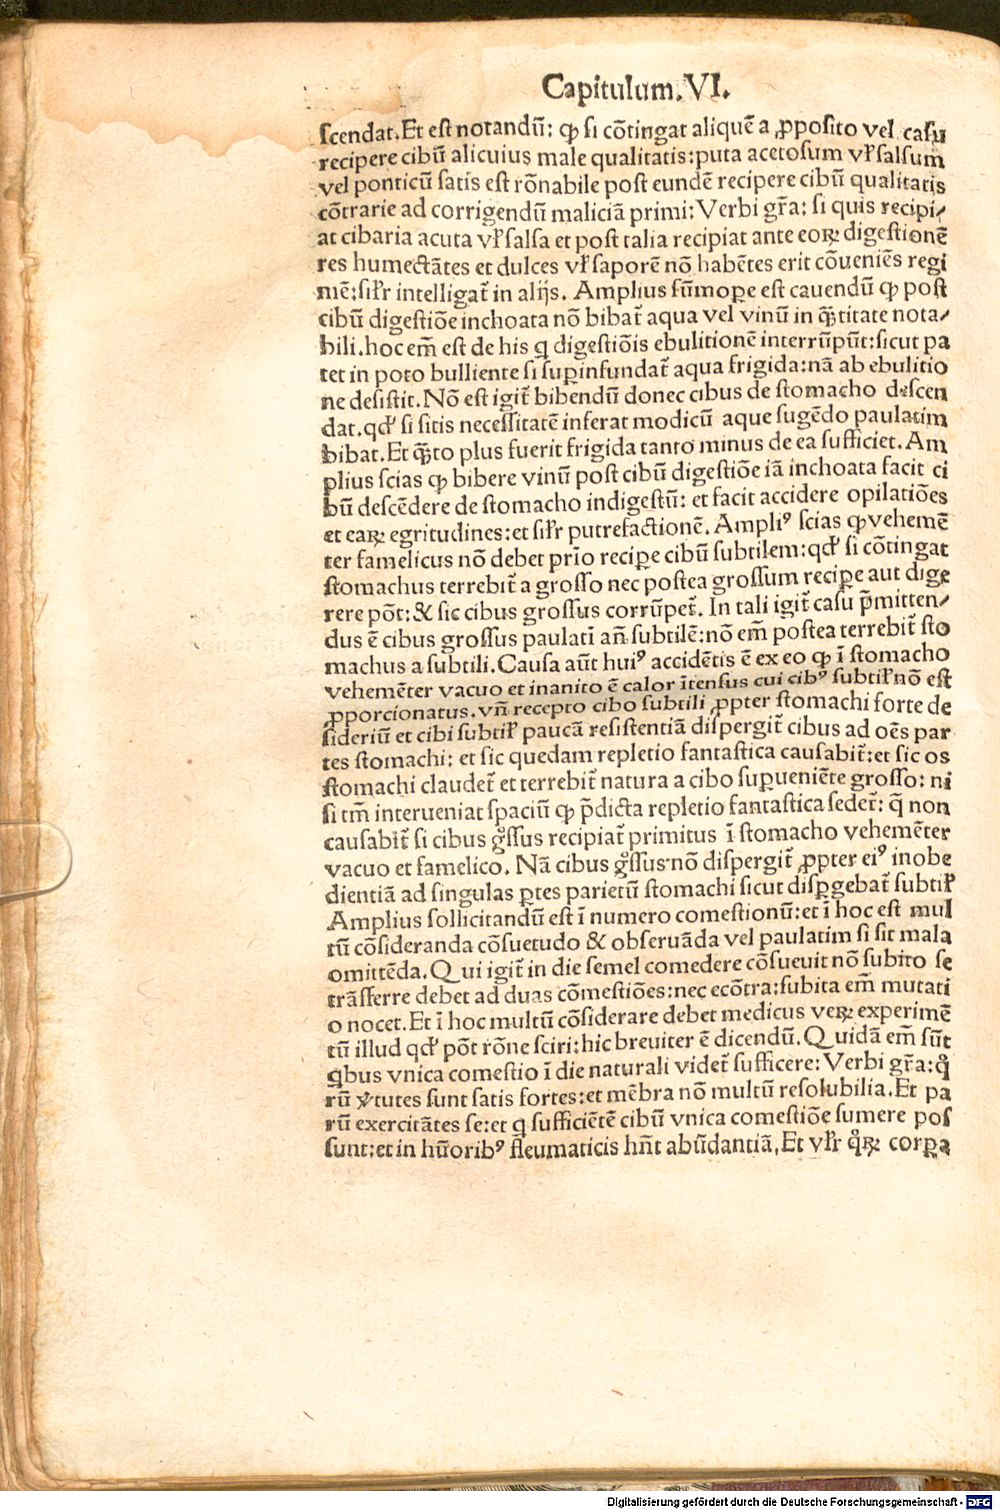 Capitulum.VI.
scendat.Et est notandū: ꝙ si cōtingat aliquē a ꝓposito vel casu
recipere cibū alicuius male qualitatis:puta acetosum vl̓ salsum
vel ponticū satis est rōnabile post eundē recipere cibū qualitatis
cōtrarie ad corrigendū maliciā primi: Verbi gr̄a: si quis recipi⸗
at cibaria acuta vl̓ salsa et post talia recipiat ante eoꝝ digestionē
res humectātes et dulces vl̓ saporē nō habētes erit cōueniēs regi
mē:sil̓r intelligat̄ in alijs. Amplius sūmoꝑe est cauendū ꝙ post
cibū digestiōe inchoata nō bibat̄ aqua vel vinū in q̄ntitate nota⸗
bili.hoc em̄ est de his q digestiōis ebulitionē interrūpūt:sicut pa
tet in poto bulliente si suꝑinfundat̄ aqua frigida:nā ab ebulitio
ne desistit. Nō est igit̄ bibendū donec cibus de stomacho descen
dat.qd̓ si sitis necessitatē inferat modicū aque sugēdo paulatim
bibat.Et q̄ꝫto plus fuerit frigida tanto minus de ea sufficiet. Am
plius scias ꝙ bibere vinū post cibū digestiōe iā inchoata facit ci
bū descēdere de stomacho indigestū: et facit accidere opilatiōes
et eaꝝ egritudines:et sil̓r putrefactionē. Ampliꝰ scias ꝙ vehemē
ter famelicus nō debet prīo reciꝑe cibū subtilem:qd̓ si cōtingat
stomachus terrebit̄ a grosso nec postea grossum reciꝑe aut dige
rere pōt: & sic cibus grossus corrūpet̄. In tali igit̄ casu p̄mitten⸗
dus ē cibus grossus paulati an̄ subtilē:nō em̄ postea terrebit̄ sto
machus a subtili. Causa aūt huiꝰ accidētis ē ex eo ꝙ ī stomacho
vehemēter vacuo et inanito ē calor ītensus cui cibꝰ subtil̓ nō est
ꝓporcionatus. vn̄ recepto cibo subtili ꝓpter stomachi forte de
sideriū et cibi subtil̓ paucā resistentiā dispergit̄ cibus ad oēs par
tes stomachi: et sic quedam repletio fantastica causabit̄:et sic os
stomachi claudet̄ et terrebit̄ natura a cibo suꝑueniēte grosso: ni
si tm̄ interueniat spaciū ꝙ p̄dicta repletio fantastica sedet̄: q̄ non
causabit̄ si cibus gͦssus recipiat̄ primitus ī stomacho vehemēter
vacuo et famelico. Nā cibus gͦssus nō dispergit̄ ꝓpter eiꝰ inobe
dientiā ad singulas ꝑtes parietū stomachi sicut disꝑgebat̄ subtil̓
Amplius sollicitandū est ī numero comestionū:et ī hoc est mul
tū cōsideranda cōsuetudo & obseruāda vel paulatim si sit mala
omittēda. Qui igit̄ in die semel comedere cōsueuit nō subito se
trāsferre debet ad duas cōmestiōes:nec ecōtra:subita em̄ mutati
o nocet. Et ī hoc multū cōsiderare debet medicus veꝝ experimē
tū illud qd̓ pōt rōne sciri:hic breuiter ē dicendū. Quidā em̄ sūt
qbus vnica comestio ī die naturali videt̄ sufficere: Verbi gr̄a: qͦ
rū v̓tutes sunt satis fortes:et mēbra nō multū resolubilia.Et pa
rū exercitātes se:et q sufficiētē cibū vnica comestiōe sumere pos
sunt:et in hūoribꝰ fleumaticis hn̄t abūdantiā, Et vl̓r qͦꝝ corꝑa
Digitalisierung gefördert durch die Deutsche Forschungsgemeinschaft - DFG